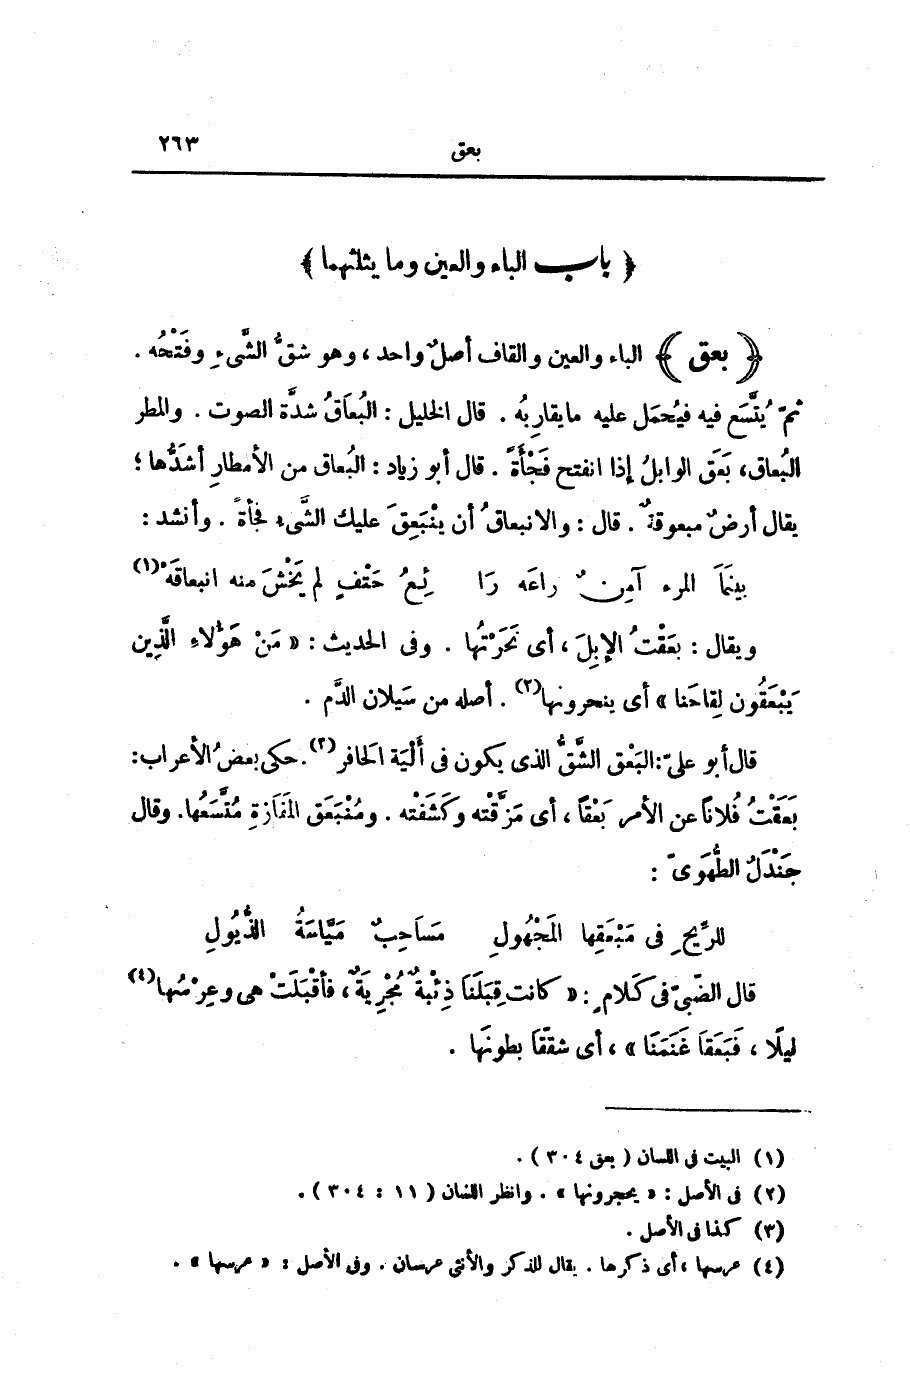 بعق ٢٦٣
﴿ باب الباء والعين وما يثلثهما ﴾
﴿ بعق ﴾ الباء والعين والقاف أصلٌ واحد ، وهو شقُّ الشَّىءِ وفَتْحُه .
ثمّ يُتَّسَع فيه فيُحمَل عليه ما يقارِبُه . قال الخليل : البُعاَقُ شدَّة الصوت . والمطر
البُعاق، بَعَق الوابلُ إذا انفتح فَجْأَةً . قال أبو زياد : البُعاق من الأمطارِ أشدُّها ؛
يقال أرضٌ مبعوقةٌ . قال : والانبعاقُ أن يَنْبَعِقَ عليك الشَّىء فجأة . وأنشد :
بينَمَا المرء آمِنٌ راعَه رَا ئِعُ حَتْفٍ لم يَخْشَ منه انبعاقَهْ(١)
ويقال : بعَقْتُ الإبِلَ ، أى نَحَرْتُها . وفى الحديث : « مَنْ هَؤُلاءِ الَّذِين
يَبْعَقُون لِقاحَنا » أى ينحرونها(٢) . أصله من سَيلان الدَّم .
قال أبو علىّ: البَعْق الشَّقُّ الذى يكون فى أَلْيَة الحافر(٣). حكى بعضُ الأعراب:
بَعَقْتُ فُلاناً عن الأمر بَعْقاً ، أى مَزَّقْته وكَشَفْته . ومُنْبَعَق المَفَازةِ مُتَّسَعُها. وقال
جَنْدَلُ الطُّهَوِىّ :
للرِّيحِ فى مَبْعَقِها المَجْهُولِ مَساَحِبٌ مَيَّاسَةُ الذُّيُولِ
قال الضّبىّ فى كَلامٍ : « كانت قِبَلَنَا ذِئْبةٌ مُجْرِيَةٌ ، فأقْبَلَتْ هى وعِرْسُها(٤)
ليلًا ، فَبَعَقاَ غَنَمَنَا » ، أى شقّقا بطونَها .
(١) البيت فى اللسان ( بعق ٣٠٤ ) .
(٢) فى الأصل : « يحجرونها » . وانظر اللسان ( ١١ : ٣٠٤ ) .
(٣) كذا فى الأصل .
(٤) عرسها ، أى ذكرها . يقال للذكر والأنثى عرسان . وفى الأصل : « عرسها » .